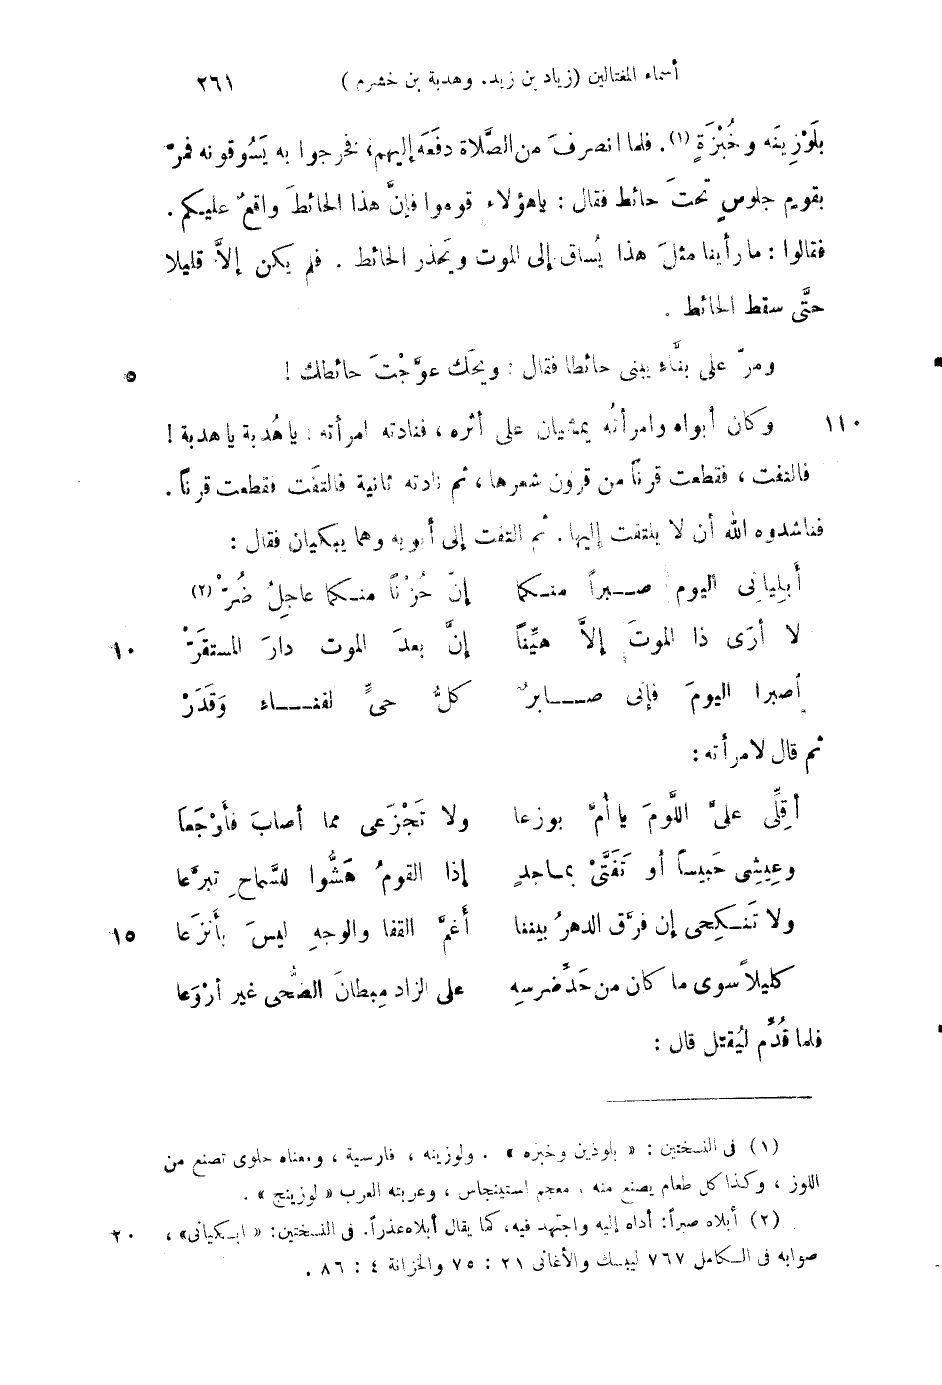 أسماء المغتالين (زياد بن زيد. وهدبة بن خشرم) ٢٦١
بلَوْزِينَه وخُبْزَةٍ (١). فلما انصرفَ من الصَّلاة دفَعَه إليهم، فخرجوا به يَسُوقونه فمرّ
بقويم جلوسٍ تحتَ حائط فقال : ياهؤلاء قوموا فإنَّ هذا الحائطَ واقعٌ عليكم .
فقالوا : ما رأينا مثلَ هذا يُساق إلى الموت ويَحذر الحائط . فلم يكن إلاَّ قليلا
حتَّى سقط الحائط .
ومرّ على بنَّاء يبنى حائطا فقال : ويحَك عوَّجْتَ حائطك ! ٥
وكان أبواه وامرأتُه يمشيان على أثره ، فنادته امرأته : ياهُدبة ياهدبة ! ١١٠
فالتفت ، فقطعت قرناً من قرون شعرها ، ثم نادته ثانية فالتفَت فقطعت قرناً .
فناشدوه الله أن لا يلتفت إليها . ثم التفت إلى أبويه وهما يبكيان فقال :
أَبلِيانى اليوم صـبراً منـكما إنّ حُزْناً منـكما عاجلُ ضُرّْ (٢)
لا أرَى ذا الموتَ إلاَّ هيِّناً إنَّ بعدَ الموت دارَ المستقَرّْ ١٠
أصبرا اليومَ فإنى صـابرٌ كلُّ حىٍّ لفنـاء وَقَدَرْ
ثم قال لامرأته :
أقِلِّى علىَّ اللَّومَ يا أُمَّ بوزعا ولا تَجْزَعى مما أصابَ فأَوْجَعَا
وعِيشِى حَبيساً أو تَفَتَّىْ بمـاجدٍ إذا القومُ هَشُّوا للسَّماحِ تبرَّعا
ولا تَنـكِحى إن فرَّق الدهرُ بيننا أغمَّ القفا والوجهِ ليسَ بأنزعَا ١٥
كليلاً سوى ما كان من حَدِّ ضرسِه على الزاد مِبطانَ الضُّحى غير أرْوَعا
فلما قُدِّم ليُقتل قال :
(١) فى النسختين : « بلوذين وخبزه » . ولوزينه ، فارسية ، ومعناه حلوى تصنع من
اللوز ، وكذا كل طعام يصنع منه . معجم استينجاس ، وعربته العرب « لوزينج » .
(٢) أبلاه صبراً: أداه إليه واجتهد فيه، كما يقال أبلاه عذراً. فى النسختين: « ابـكيانى» ، ٢٠
صوابه فى الـكامل ٧٦٧ ليبسك والأغانى ٢١ : ٧٥ والخزانة ٤ : ٨٦ .